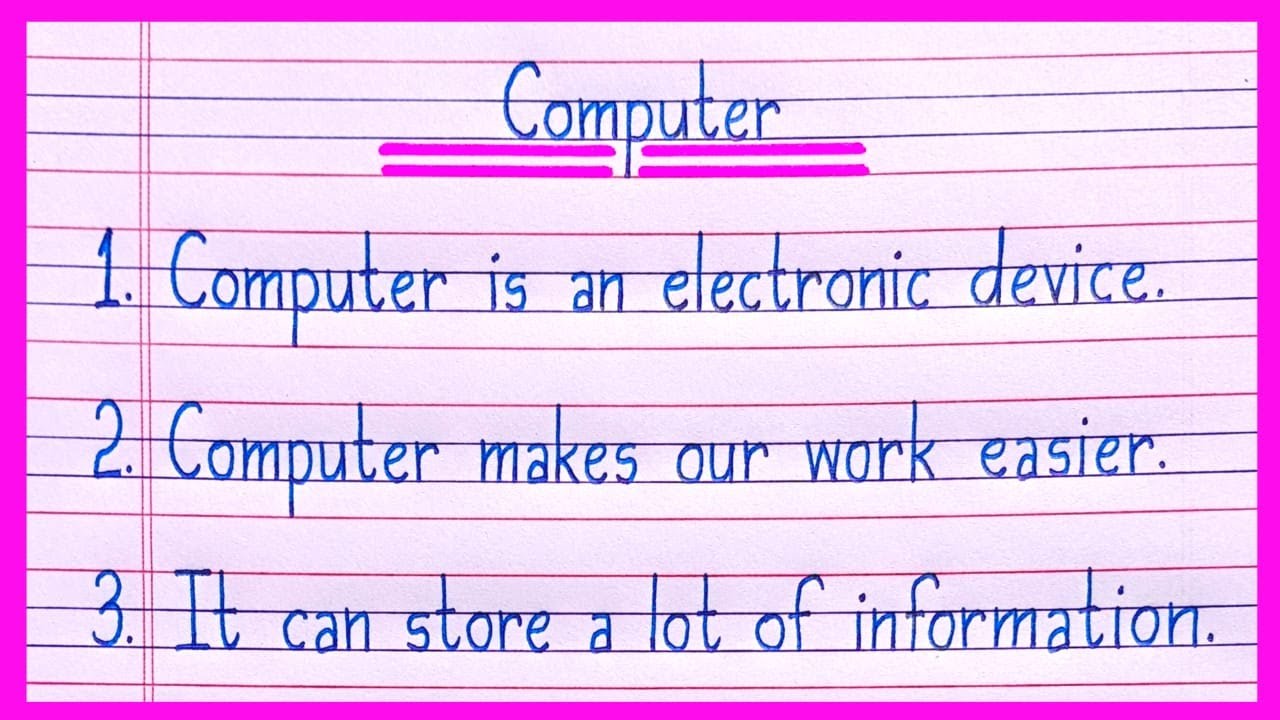 Computer
1. Computer is an electronic device.
2. Computer makes our work easier.
3. It can store a lot of information.